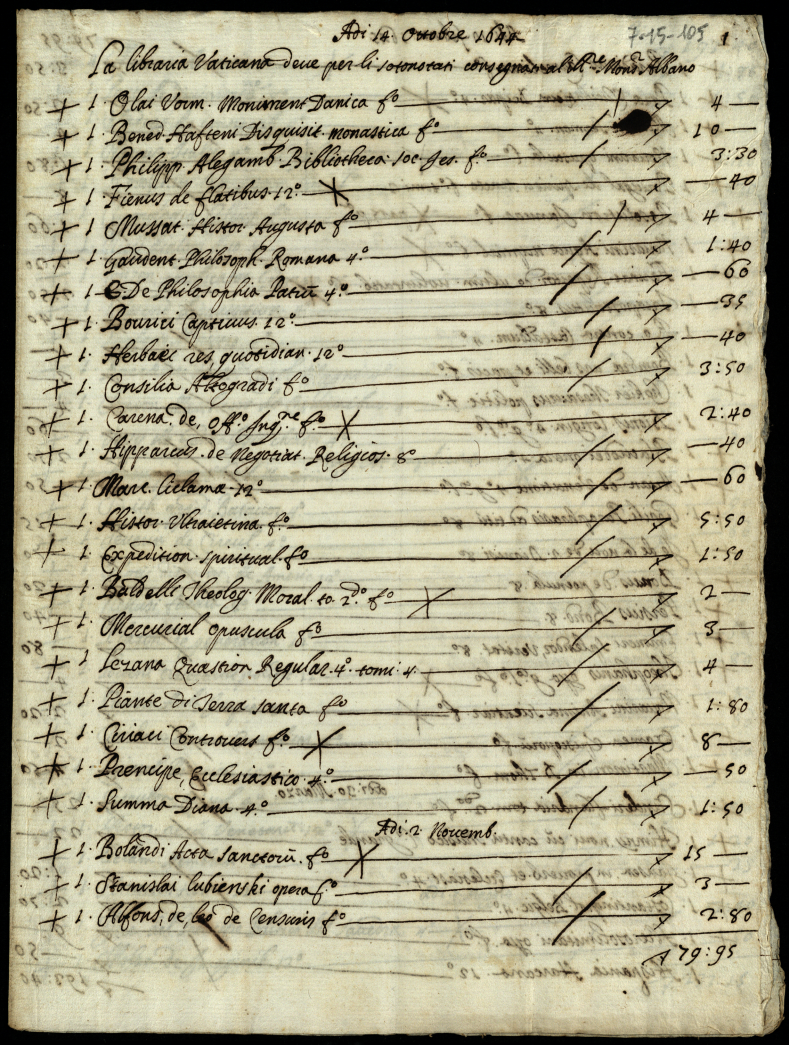 Adi 14 Ottobre 1644
7-15-105 1
La libraria Vaticana deve per li sotonotati consegnati al Ill.re Mons.r Albano
+ 1. Olai Vorm. Moniment Danica fo 4 —
+ 1. Bened. Hafteni Disquisit. monastica fo 10 —
+ 1. Philipp Alegamb Bibliotheca soc. Jes. fo 3:30
+ 1. Fienus de flatibus 12o — 40
+ 1. Mussat. Histor Augusta fo 4 —
+ 1. Gaudent. Philosoph. Romana 4.o 1:40
+ 1. De Philosophia Patrū 4.o — 60
+ 1. Bourici Captivus 12o — 35
+ 1. Herbaei res quotidian. 12o — 40
+ 1. Consilia Altogradi fo 3:50
+ 1. Carena de Offo Inq.ne fo 2:40
+ 1. Hipparcus de Negotiat. Religios. 8o — 40
+ 1. Marc. 12o — 60
+ 1. Histor Ultraietina fo 5:50
+ 1. Expedition spiritual fo 1:50
+ 1. Baldelli Theolog. Moral to. 2.o fo 2 —
+ 1. Mercurial opuscula fo 3 —
+ 1. Lezana Quæstion Regular. 4.o tomi 4. 4 —
+ 1. Piante di Terra santa fo 1:80
+ 1. Ciriaci Controvers fo 8 —
+ 1. Prencipe Ecclesiastico 4.o — 50
+ 1. Summa Diana 4.o 1:50
Adi 2 Novemb.
+ 1. Bolandi Acta sanctorū fo 15 —
+ 1. Stanislai lubienski opera fo 3 —
+ 1. Alfons. de leo de Censuris fo 2:80
79:95